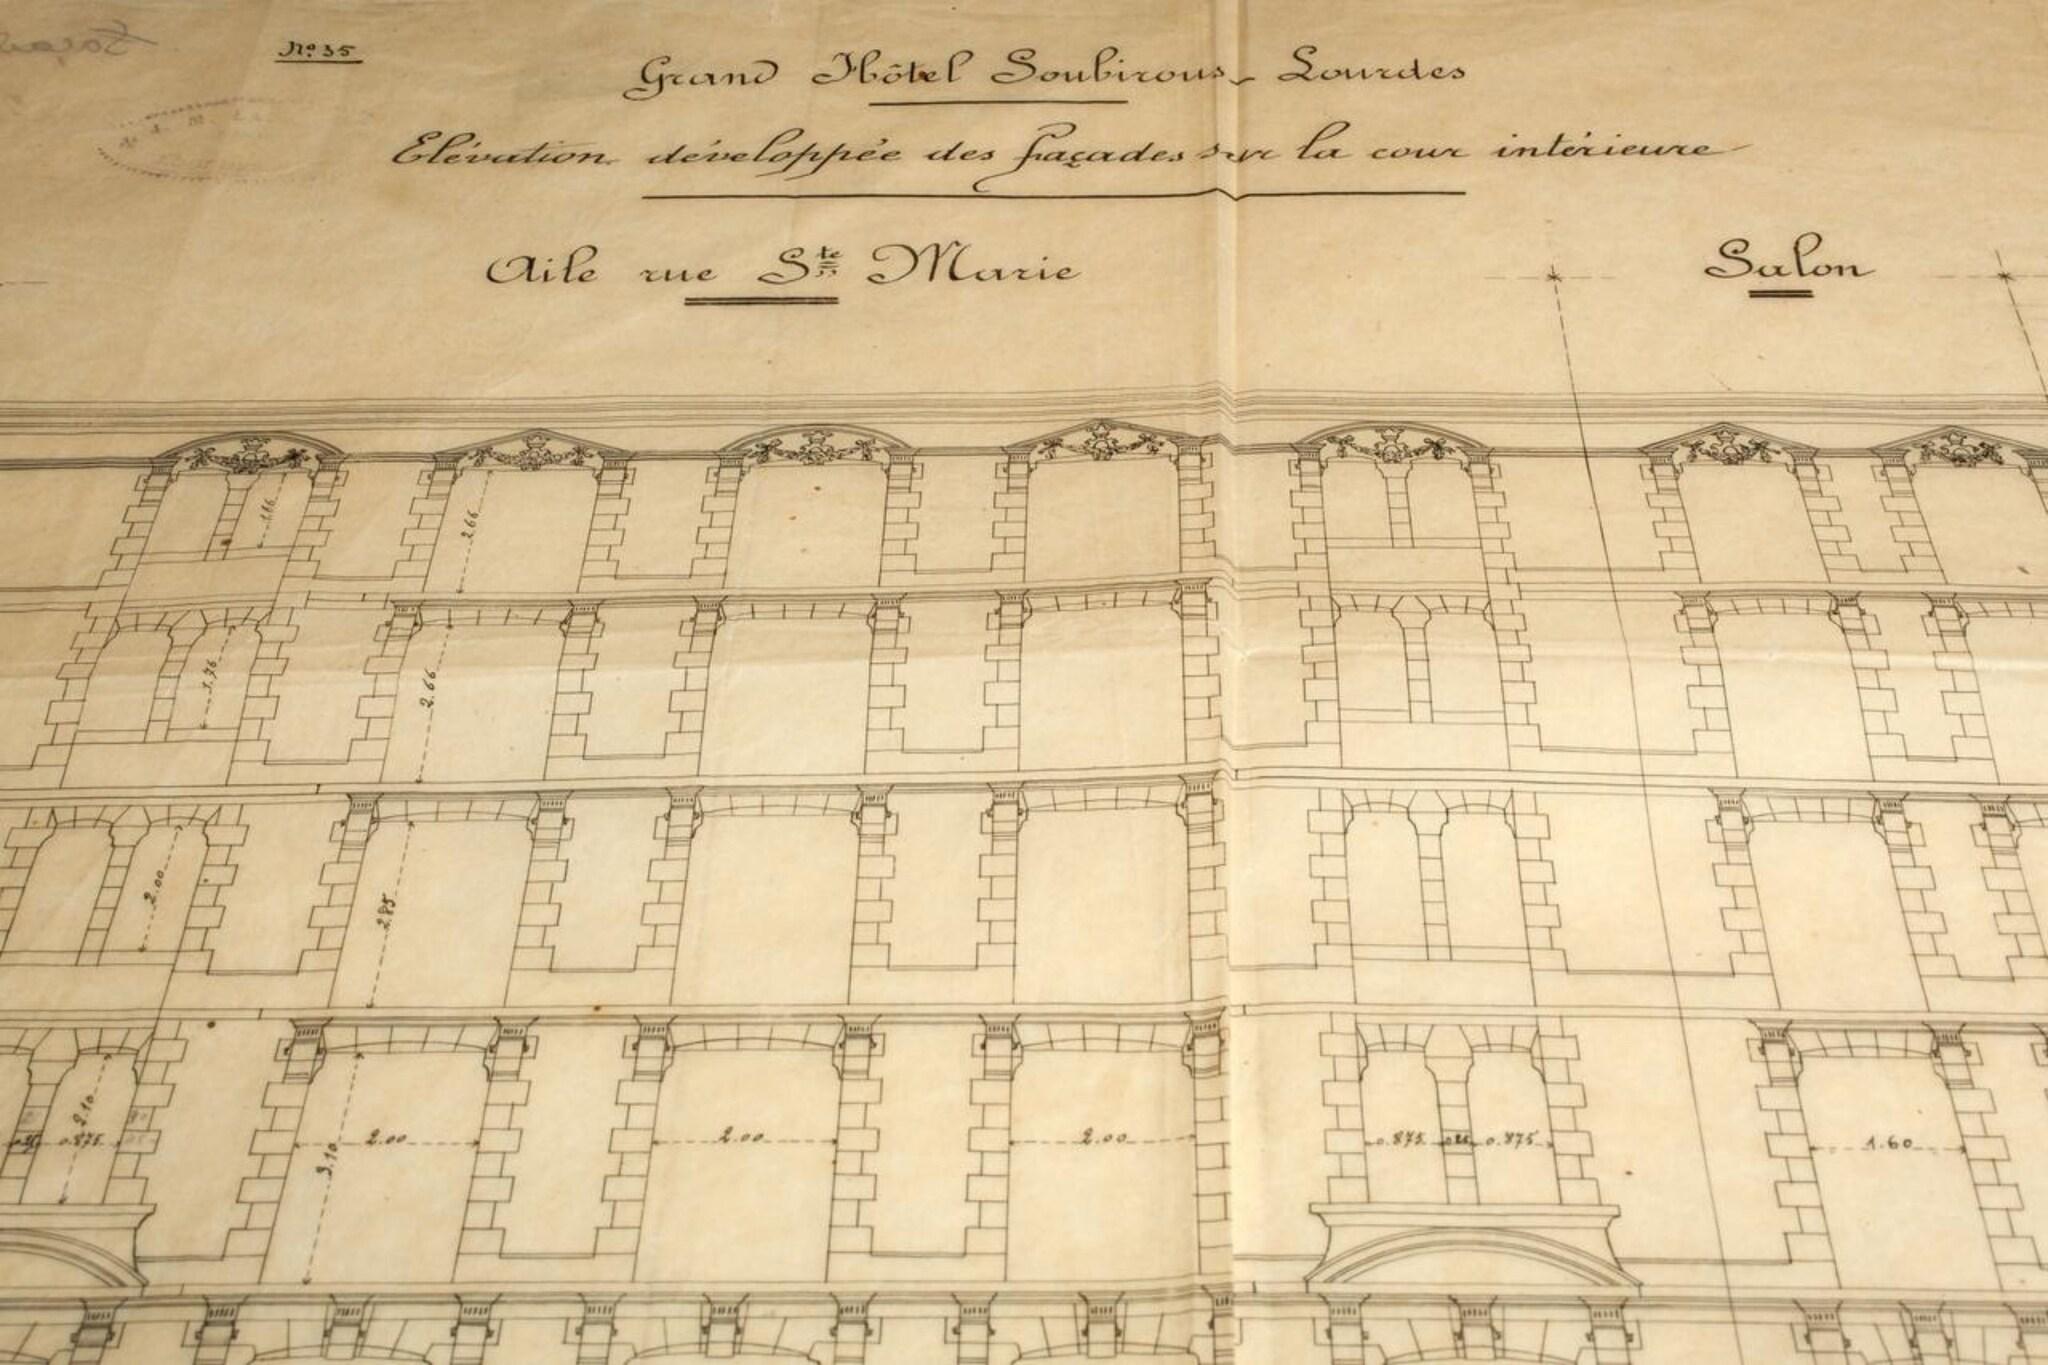 No. 35
Grand Hôtel Soubirous - Lourdes
Elévation développée des façades sur la cour intérieure
Aile rue Ste Marie
Salon
1.16
2.66
1.76
2.66
2.00
2.85
2.10
0.875
3.10
2.00
2.00
2.00
0.875
0.875
1.60